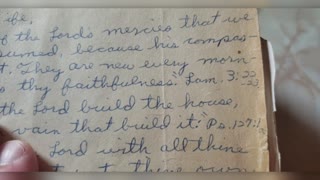 ife,
f the Lord's mercies that we
sumed, because his compas-
t. They are new every morn-
s thy faithfulness." Lam. 3:22
-23
the Lord build the house,
vain that build it:" Ps. 127:1
Lord with all thine